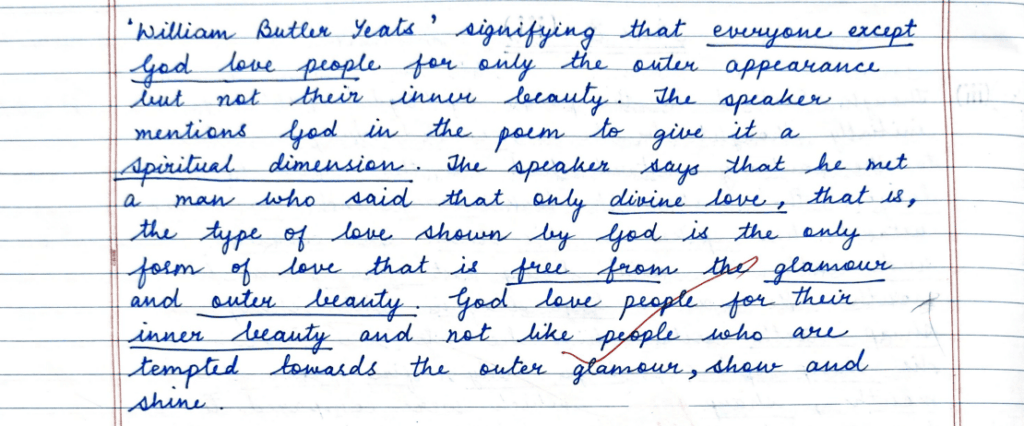 'William Butler Yeats' signifying that everyone except
God love people for only the outer appearance
but not their inner beauty. The speaker
mentions God in the poem to give it a
spiritual dimension. The speaker says that he met
a man who said that only divine love, that is,
the type of love shown by God is the only
form of love that is free from the glamour
and outer beauty. God love people for their
inner beauty and not like people who are
tempted towards the outer glamour, show and
shine.